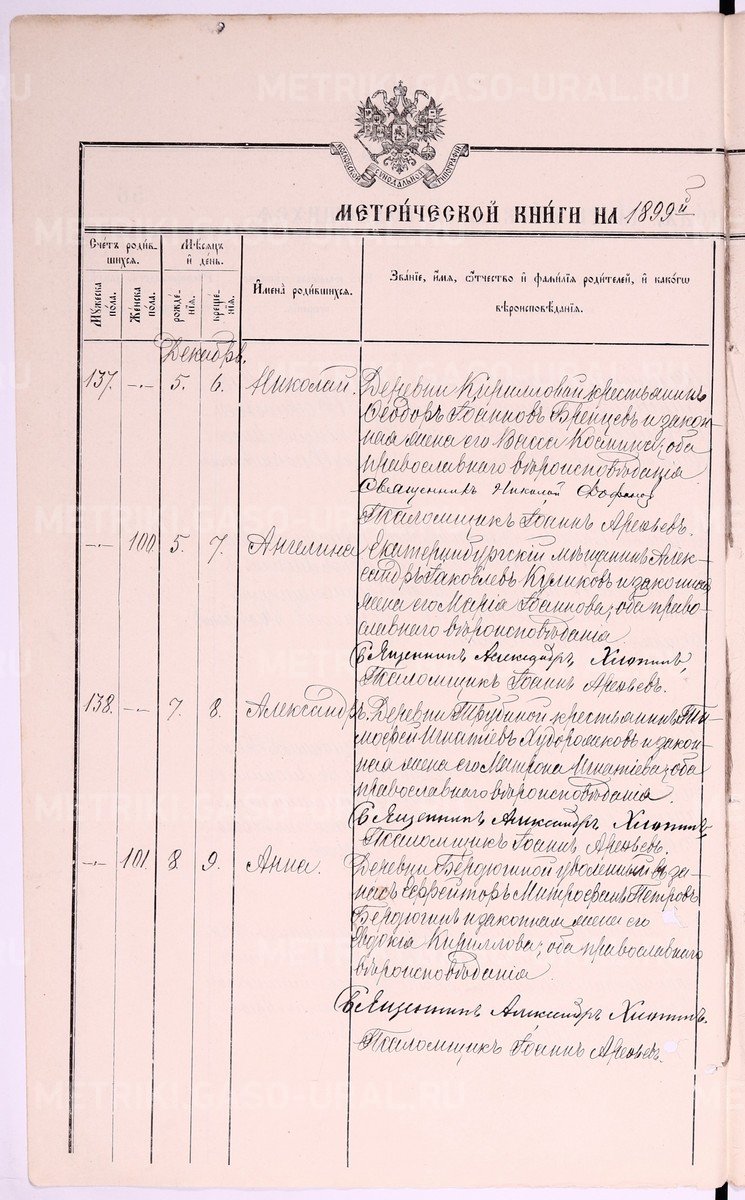 METRIKI.GASO-URAL.RU
МОСКОВСКОЙ СѴНОДАЛЬНОЙ ТИПОГРАФІИ
МЕТРИ́ЧЕСКОЙ КНИ́ГИ НА 1899й
Сче́тъ роди́в-
шихся.
Мѣ́сяцъ
и҆ де́нь.
И҆мена̀ роди́вшихся.
Зва́нїе, и҆́мя, ѻ҆́тчество и҆ фами́лїа роди́телей, и҆ како́гѡ
вѣроисповѣ́данїя.
Мꙋ́жеска
по́ла.
Же́нска
по́ла.
рожде-
нїя.
креще-
нїя.
Декабрь.
137. -"- 5. 6. Николай. Деревни Кирилловой крестьянинъ
Ѳеодоръ Іоанновъ и закон-
ная жена его Васса Космина; оба
православнаго вѣроисповѣданія.
Священникъ Николай
Псаломщикъ Іоаннъ Арефьевъ.
-"- 100. 5. 7. Ангелина. Екатеринбургскій мѣщанинъ Алек-
сандръ Іаковлевъ Куликовъ и законная
жена его Марія Іоаннова; оба право-
славнаго вѣроисповѣданія.
Священникъ Александръ Хлопинъ.
Псаломщикъ Іоаннъ Арефьевъ.
138. -"- 7. 8. Александръ. Деревни Трубиной крестьянинъ Ти-
моѳей Игнатіевъ Худорожковъ и закон-
ная жена его Матрона Игнатіева; оба
православнаго вѣроисповѣданія.
Священникъ Александръ Хлопинъ.
Псаломщикъ Іоаннъ Арефьевъ.
-"- 101. 8. 9. Анна. Деревни Бердюгиной уволенный въ за-
пасъ Ефрейторъ Митрофанъ Петровъ
Бердюгинъ и законная жена его
Евдокія Кириллова; оба православнаго
вѣроисповѣданія.
Священникъ Александръ Хлопинъ.
Псаломщикъ Іоаннъ Арефьевъ.